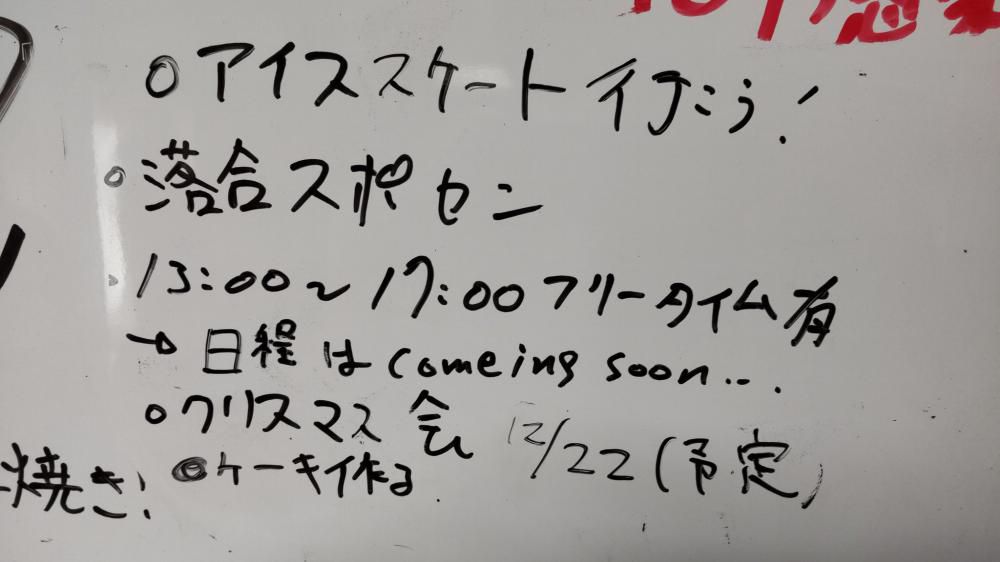 ○アイススケート行こう!
○落合スポセン
・13:00~17:00フリータイム有
→日程はcomeing soon...
○クリスマス会 12/22(予定)
◎ケーキ作る
焼き!